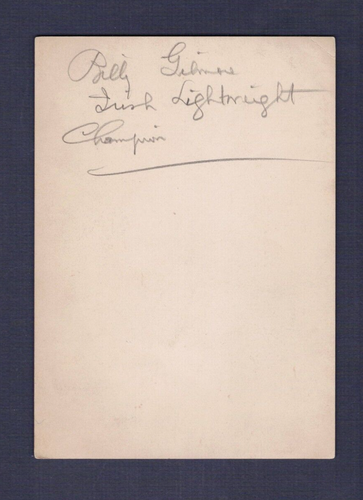 Billy Gilmore
Irish Lightweight
Champion